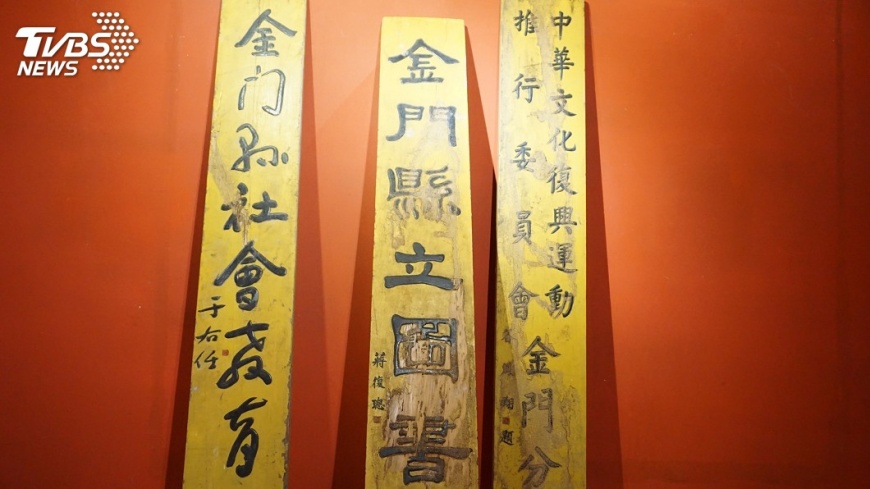 TVBS
NEWS
金门縣社會教育
于右任
金門縣立圖書
蔣復璁
中華文化復興運動
推行委員會
金門分
題